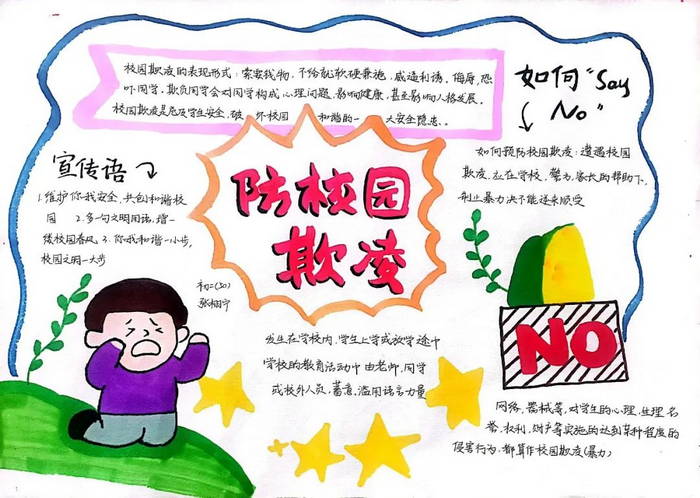 校园欺凌的表现形式:索要钱物,不给就软硬兼施,威逼利诱,侮辱,恐
吓同学,欺负同学会对同学构成心理问题,影响健康,甚至影响人格发展。
校园欺凌是危及学生安全,破坏校园和谐的一大安全隐患。
如何“Say
No”
如何预防校园欺凌:遭遇校园
欺凌,应在学校、警方、家长的帮助下,
制止暴力决不能逆来顺受
宣传语
1.维护你我安全,共创和谐校
园 2.多一句文明用语,增一
缕校园春风 3.你我和谐一小步,
校园文明一大步
防校园
欺凌
初二(30)
发生在学校内,学生上学或放学途中
学校的教育活动中由老师,同学
或校外人员,蓄意滥用语言力量
NO
网络,器械等,对学生的心理,生理名
誉,权利,财产等实施的达到某种程度的
侵害行为,都算作校园欺凌(暴力)